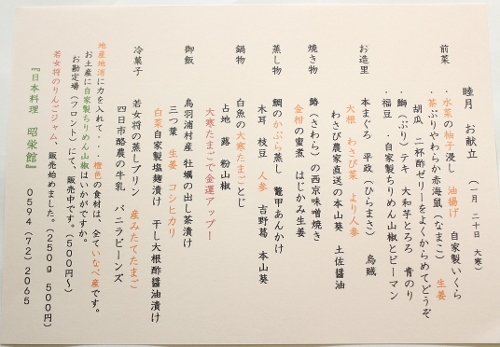 睦月 お献立 (一月 二十日 大寒)
前菜
・水菜の柚子浸し 油揚げ 自家製いくら
・茶ぶりやわらか赤海鼠(なまこ) 生姜
胡瓜 二杯酢ゼリーをよくからめてどうぞ
・鰤(ぶり)テキ 大和芋とろろ 青のり
・福豆 ・自家製ちりめん山椒とピーマン
お造里
本まぐろ 平政(ひらまさ) 烏賊
大根 わさび菜 より人参
わさび農家直送の本山葵 土佐醤油
焼き物
鰆(さわら)の西京味噌焼き
金柑の蜜煮 はじかみ生姜
蒸し物
鯛のかぶら蒸し 鼈甲あんかけ
木耳 枝豆 人参 吉野葛 本山葵
鍋物
白魚の大寒たまごとじ
占地 蕗 粉山椒
大寒たまごで金運アップー
御飯
鳥羽浦村産 牡蠣の出し茶漬け
三つ葉 生姜 コシヒカリ
白菜自家製塩麹漬け 干し大根酢醤油漬け
冷菓子
若女将の蒸しプリン 産みたてたまご
四日市酪農の牛乳 バニラビーンズ
地産地消に力を入れて・・橙色の食材は、全ていなべ産です。
お土産に自家製ちりめん山椒はいかがですか。
お勘定場(フロント)にて、販売中です。(500円~)
若女将のりんごジャム、販売始めました。(250g 500円)
『日本料理 昭栄館』 0594(72)2065